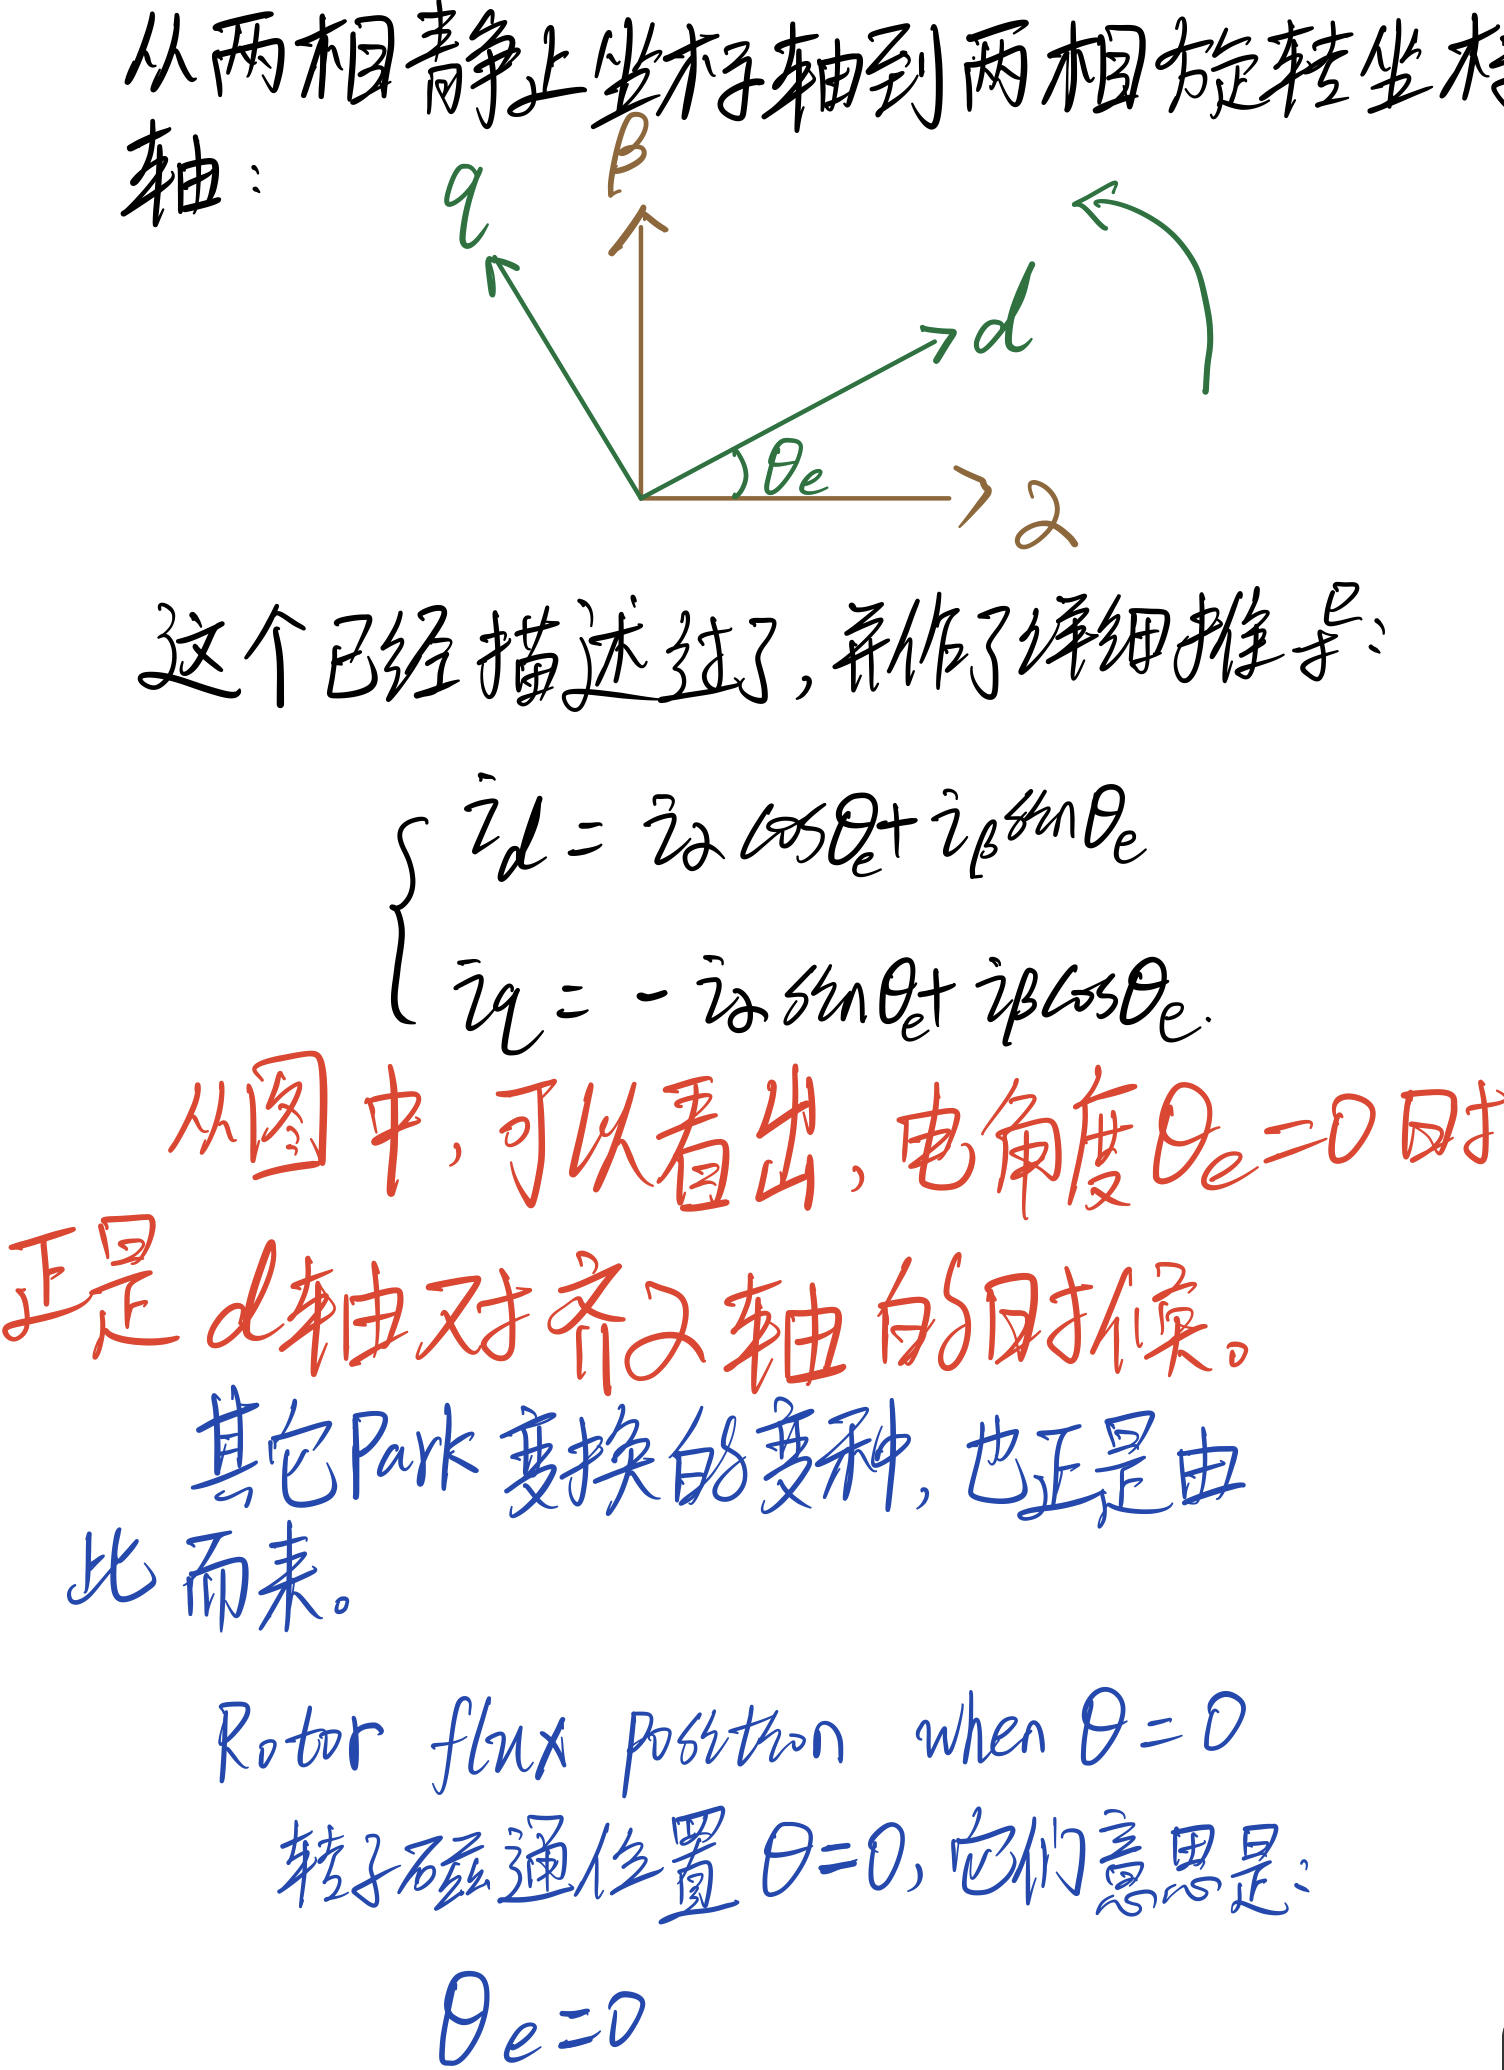 从两相静止坐标轴到两相旋转坐标
轴:
β
q
d
θe
α
这个已经描述过了,并作了详细推导:
id = iα cosθe + iβ sinθe
iq = - iα sinθe + iβ cosθe.
从图中,可以看出,电角度θe=0时
正是d轴对齐α轴的时候。
其它Park变换的变种,也正是由
此而来。
Rotor flux position when θ=0
转子磁通位置θ=0,它们意思是:
θe=0